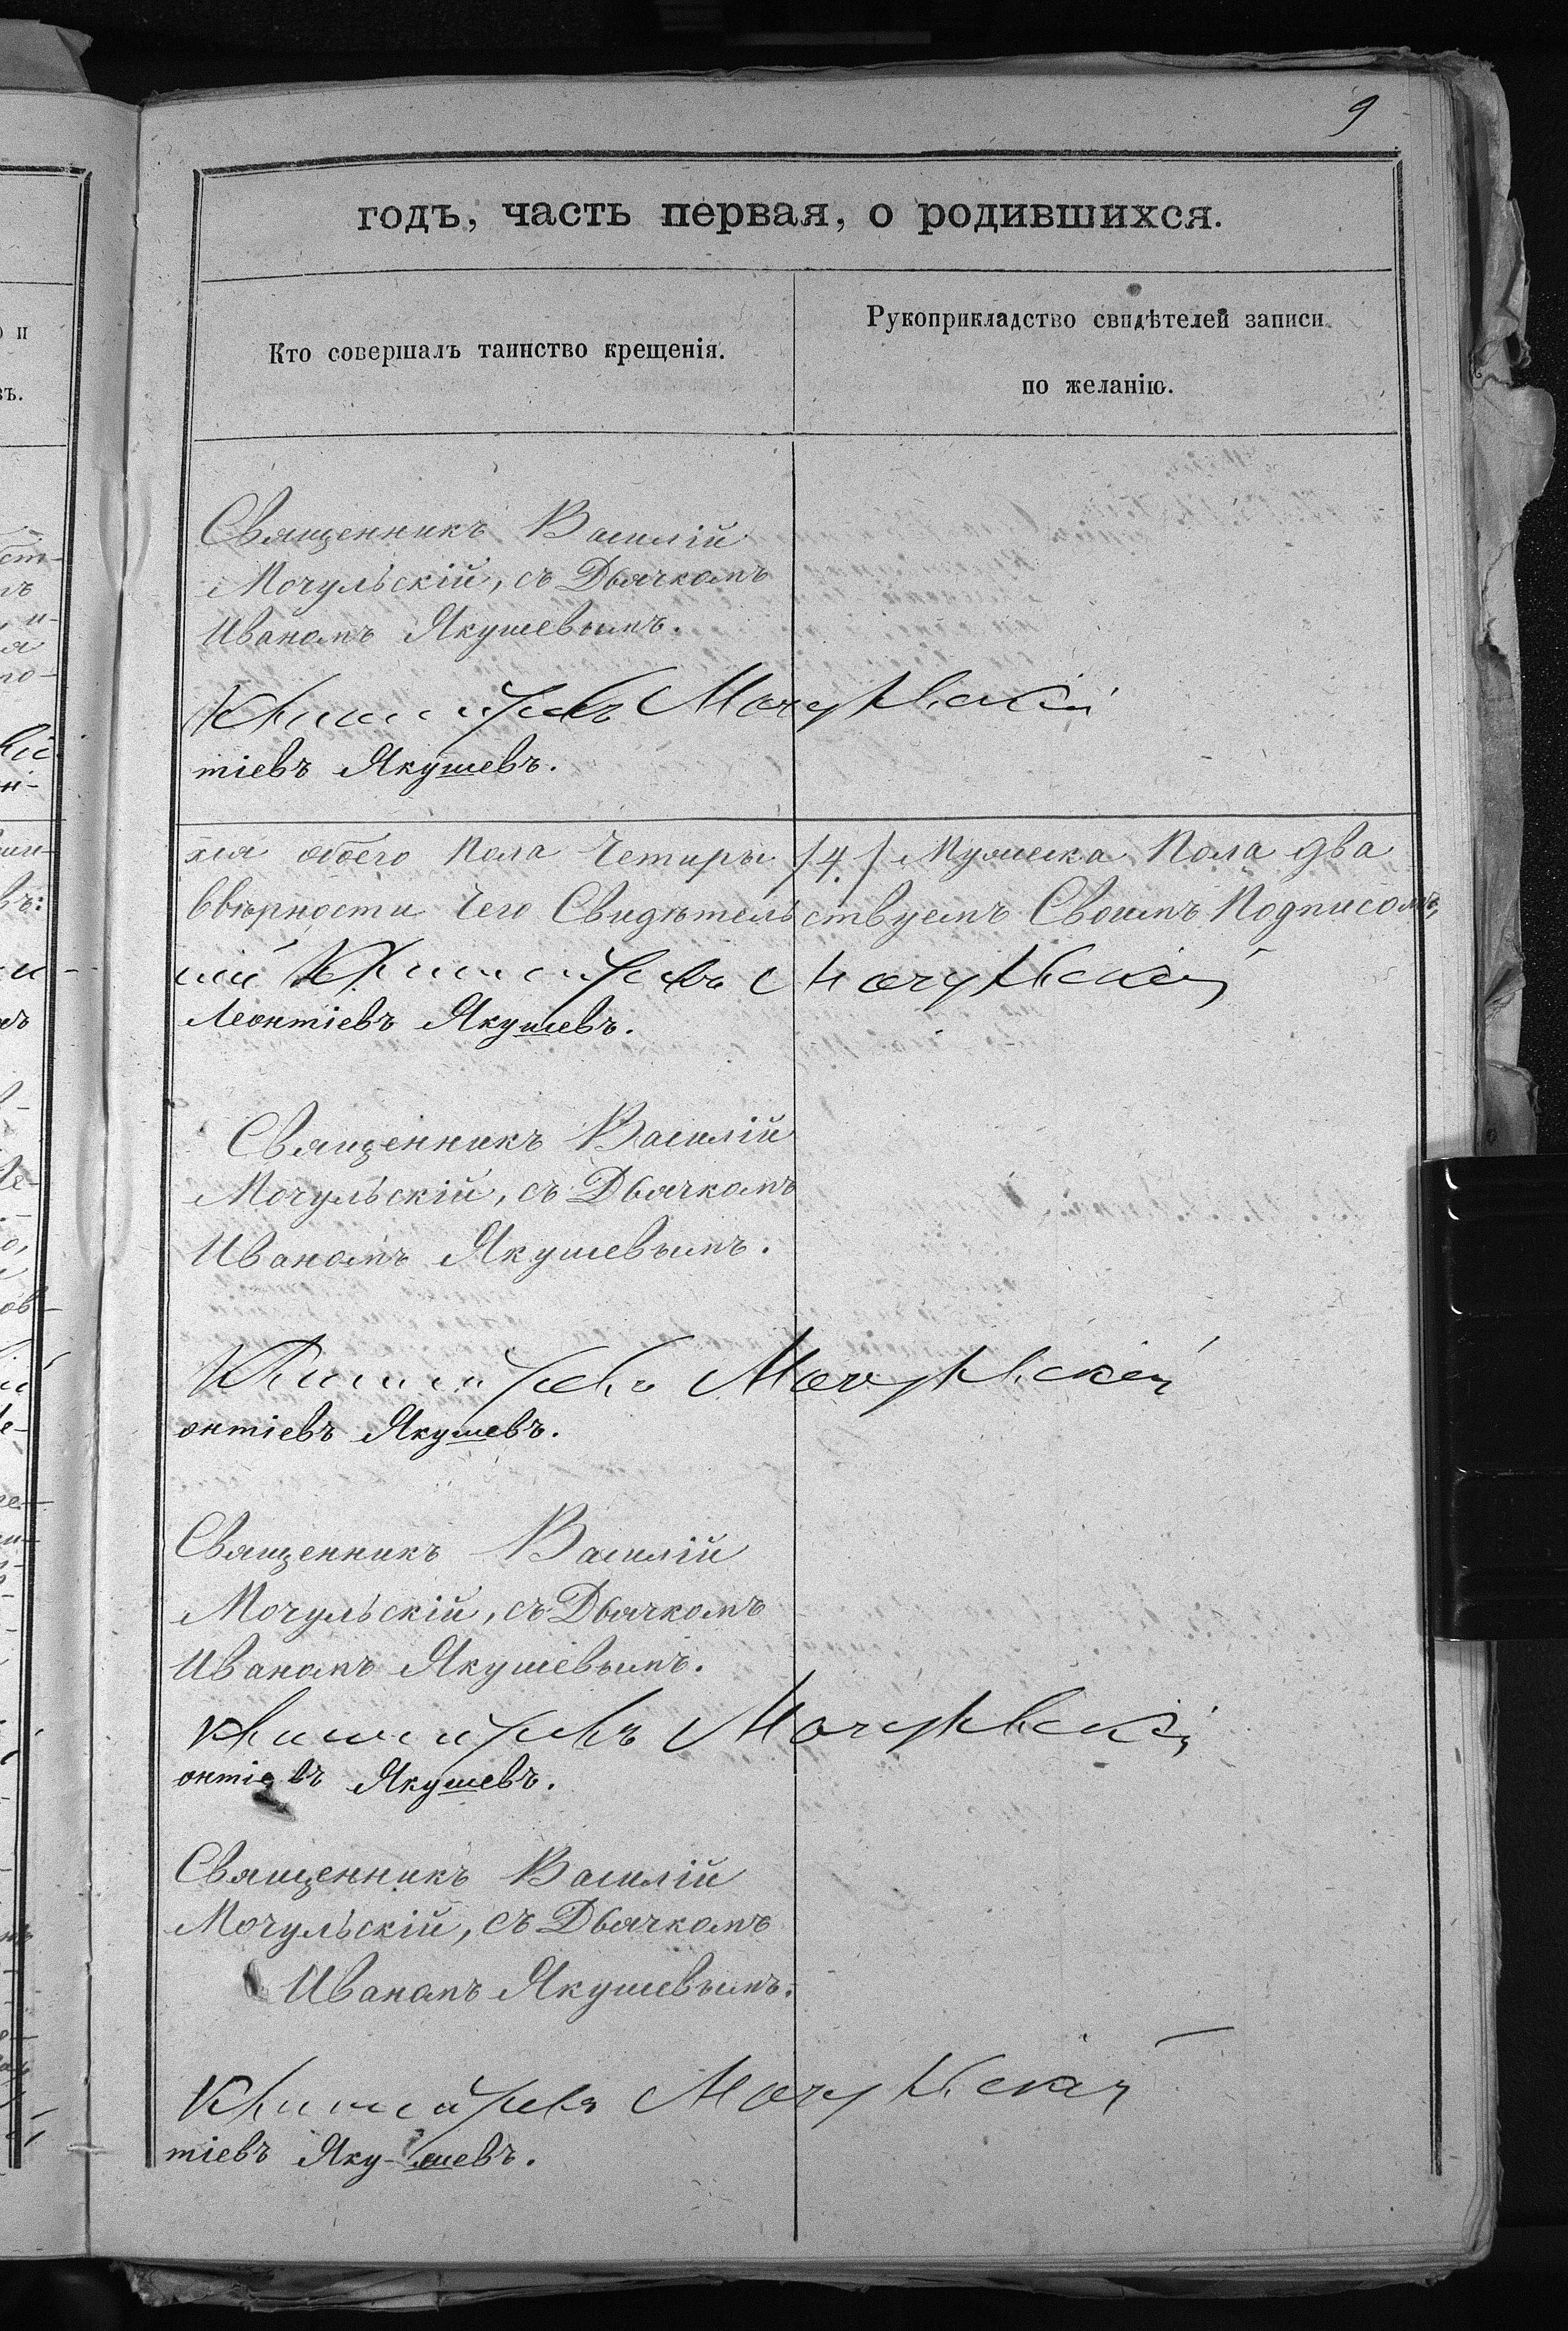 9
годъ, часть первая, о родившихся.
Кто совершалъ таинство крещенія.
Рукоприкладство свидѣтелей записи
по желанію.
Священникъ Василій
Мочульскій, съ Дьячкомъ
Иваномъ Якушевымъ.
Мочульскій
тіевъ Якушевъ.
хся обоего Пола Четыри /4./ Мужеска Пола два
ввѣрности Чего Свидѣтельствуемъ Своимъ Подписомъ,
лій Мочульскій
Леонтіевъ Якушевъ.
Священникъ Василій
Мочульскій, съ Дьячкомъ
Иваномъ Якушевымъ.
Мочульскій
онтіевъ Якушевъ.
Священникъ Василій
Мочульскій, съ Дьячкомъ
Иваномъ Якушевымъ.
Мочульскій
онтіевъ Якушевъ.
Священникъ Василій
Мочульскій, съ Дьячкомъ
Иваномъ Якушевымъ.
Мочульскій
тіевъ Яку-шевъ.